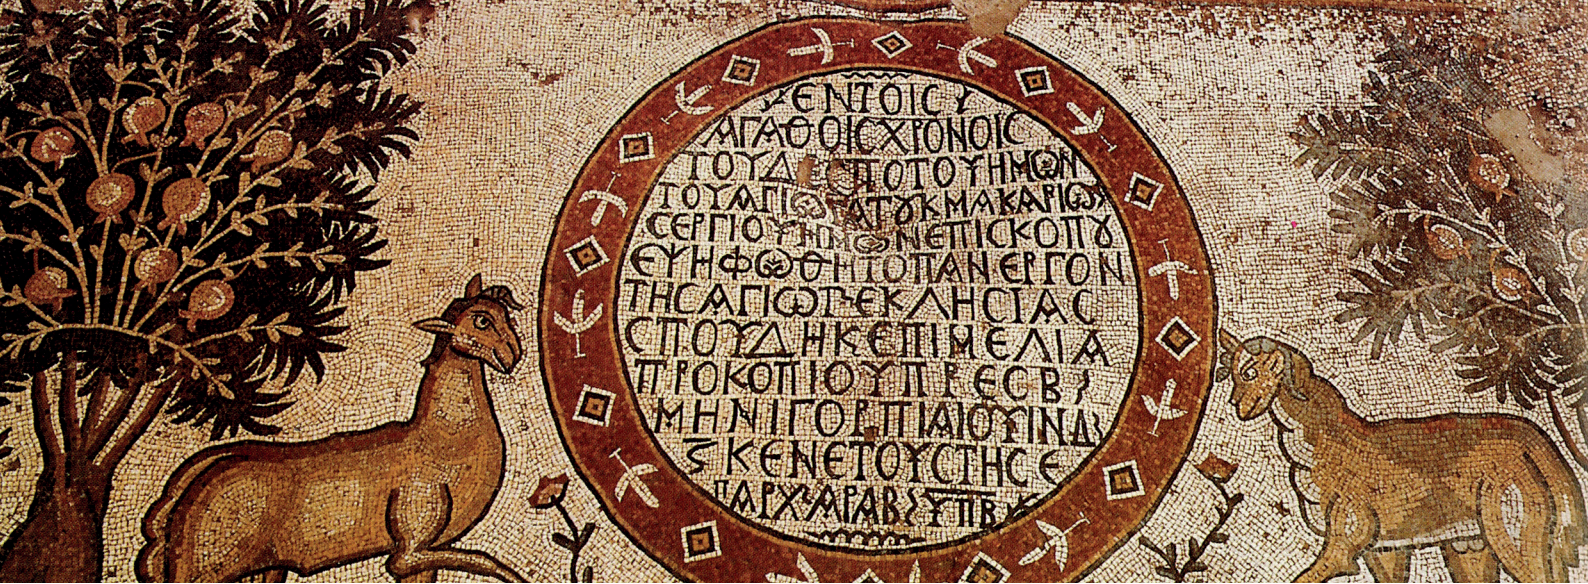 ΕΝΤΟΙCΥ
ΑΓΑΘΟΙCΧΡΟΝΟΙC
ΤΟΥΔΕCΠΟΤΟΥΗΜΩΝ
ΤΟΥΑΓΙΩΤΑΤȢΚΜΑΚΑΡΙΩΤ
CΕΡΓΙΟΥΗΜΩΝΕΠΙCΚΟΠȢ
ΕΨΗΦΩΘΗΤΟΠΑΝΕΡΓΟΝ
ΤΗCΑΓΙΩΤϨΕΚΛΗCΙΑC
CΠΟΥΔΗΚΕΠΙΜΕΛΙΑ
ΠΡΟΚΟΠΙΟΥΠΡΕCΒϨ
ΜΗΝΙΓΟΡΠΙΑΙΟΥΙΝΔϨ
ϚΚΕΝΕΤΟΥCΤΗCΕ
ΠΑΡΧϨΑΡΑΒϨΥΠΒ